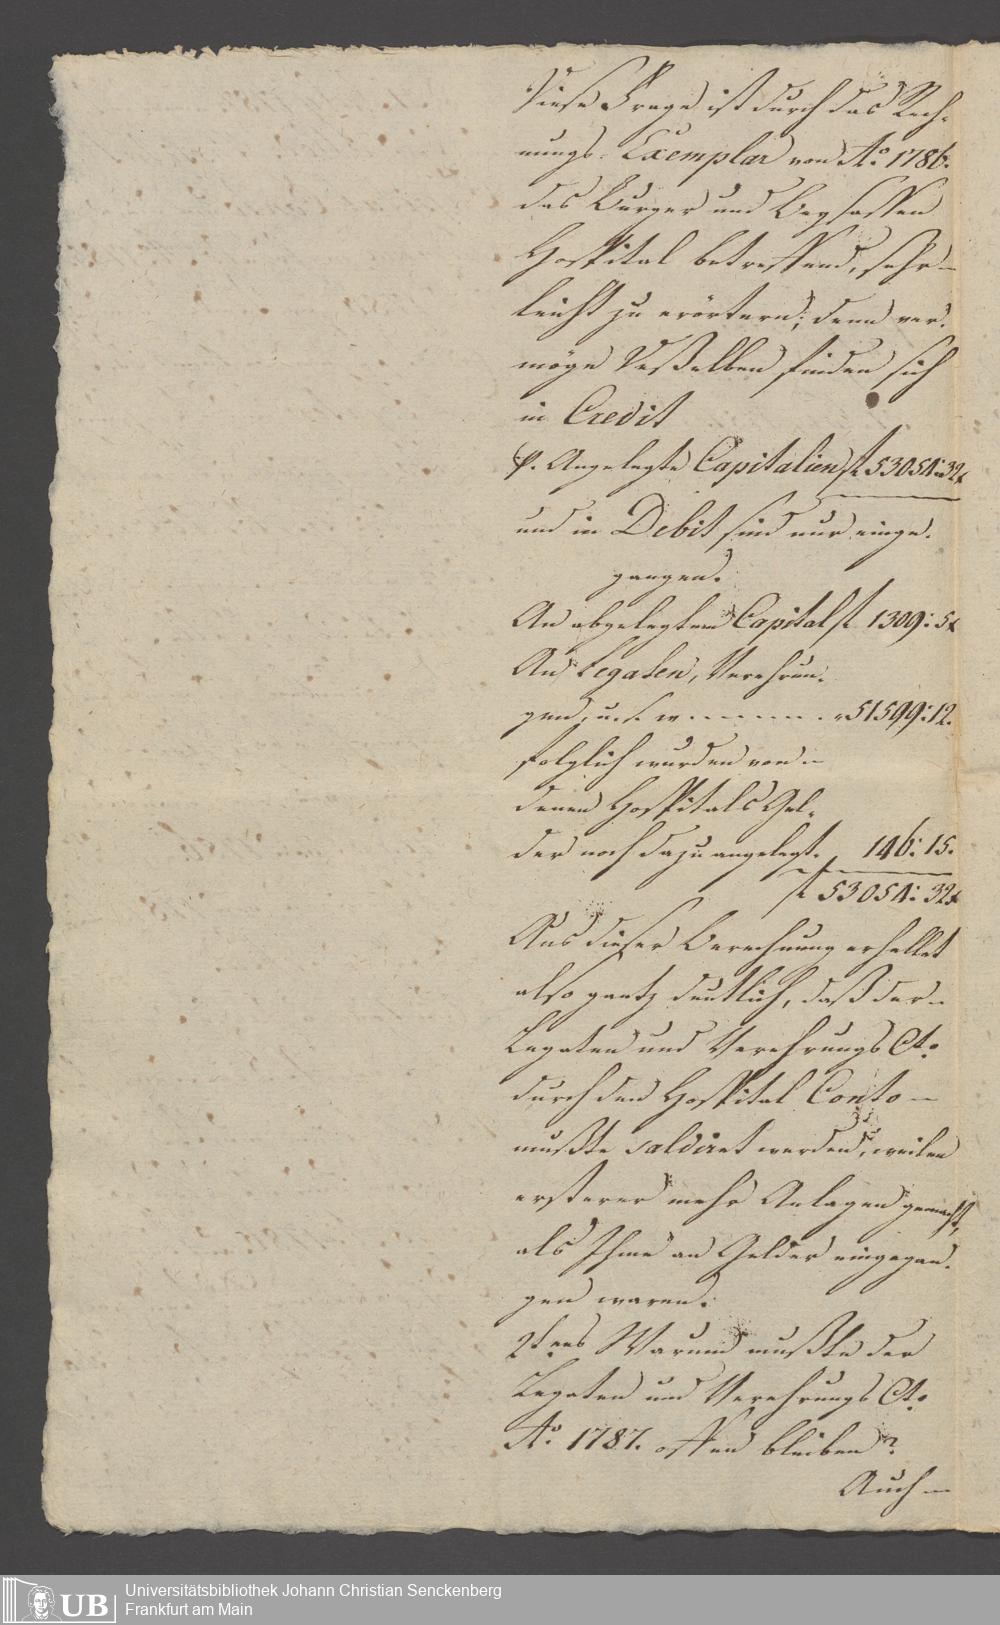 Diese Frage ist durch das Rech-
nungs-Exemplar von Ao. 1786.
das Burger und Beysassen
Hospital betreffend, sehr
leicht zu erörtern; denn ver-
möge Deßelben finden sich
in Credit
p. Angelegte Capitalien f 53054:32x
und in Debit sind nur einge-
gangen.
An abgelegtem Capital f 1309:5x
An Legaten, Verehrun-
gen, u. s. w. . . . . . . . „51599:12.
folglich wurden von
denen Hospitals Gel-
der noch dazu angelegt. 146:15.
f 53054:32x
Aus dieser Berechnung erhellet
also gantz deutlich, daß der
Legaten und Verehrungs Cto
durch den Hospital Conto
mußte saldiret werden, weilen
ersterer mehr Anlagen gemacht,
als Ihme an Gelder eingegan-
gen waren.
2tens Warum mußte der
Legaten und Verehrungs Cto
Ao. 1787. offen bleiben?
Auch
UB
Universitätsbibliothek Johann Christian Senckenberg
Frankfurt am Main